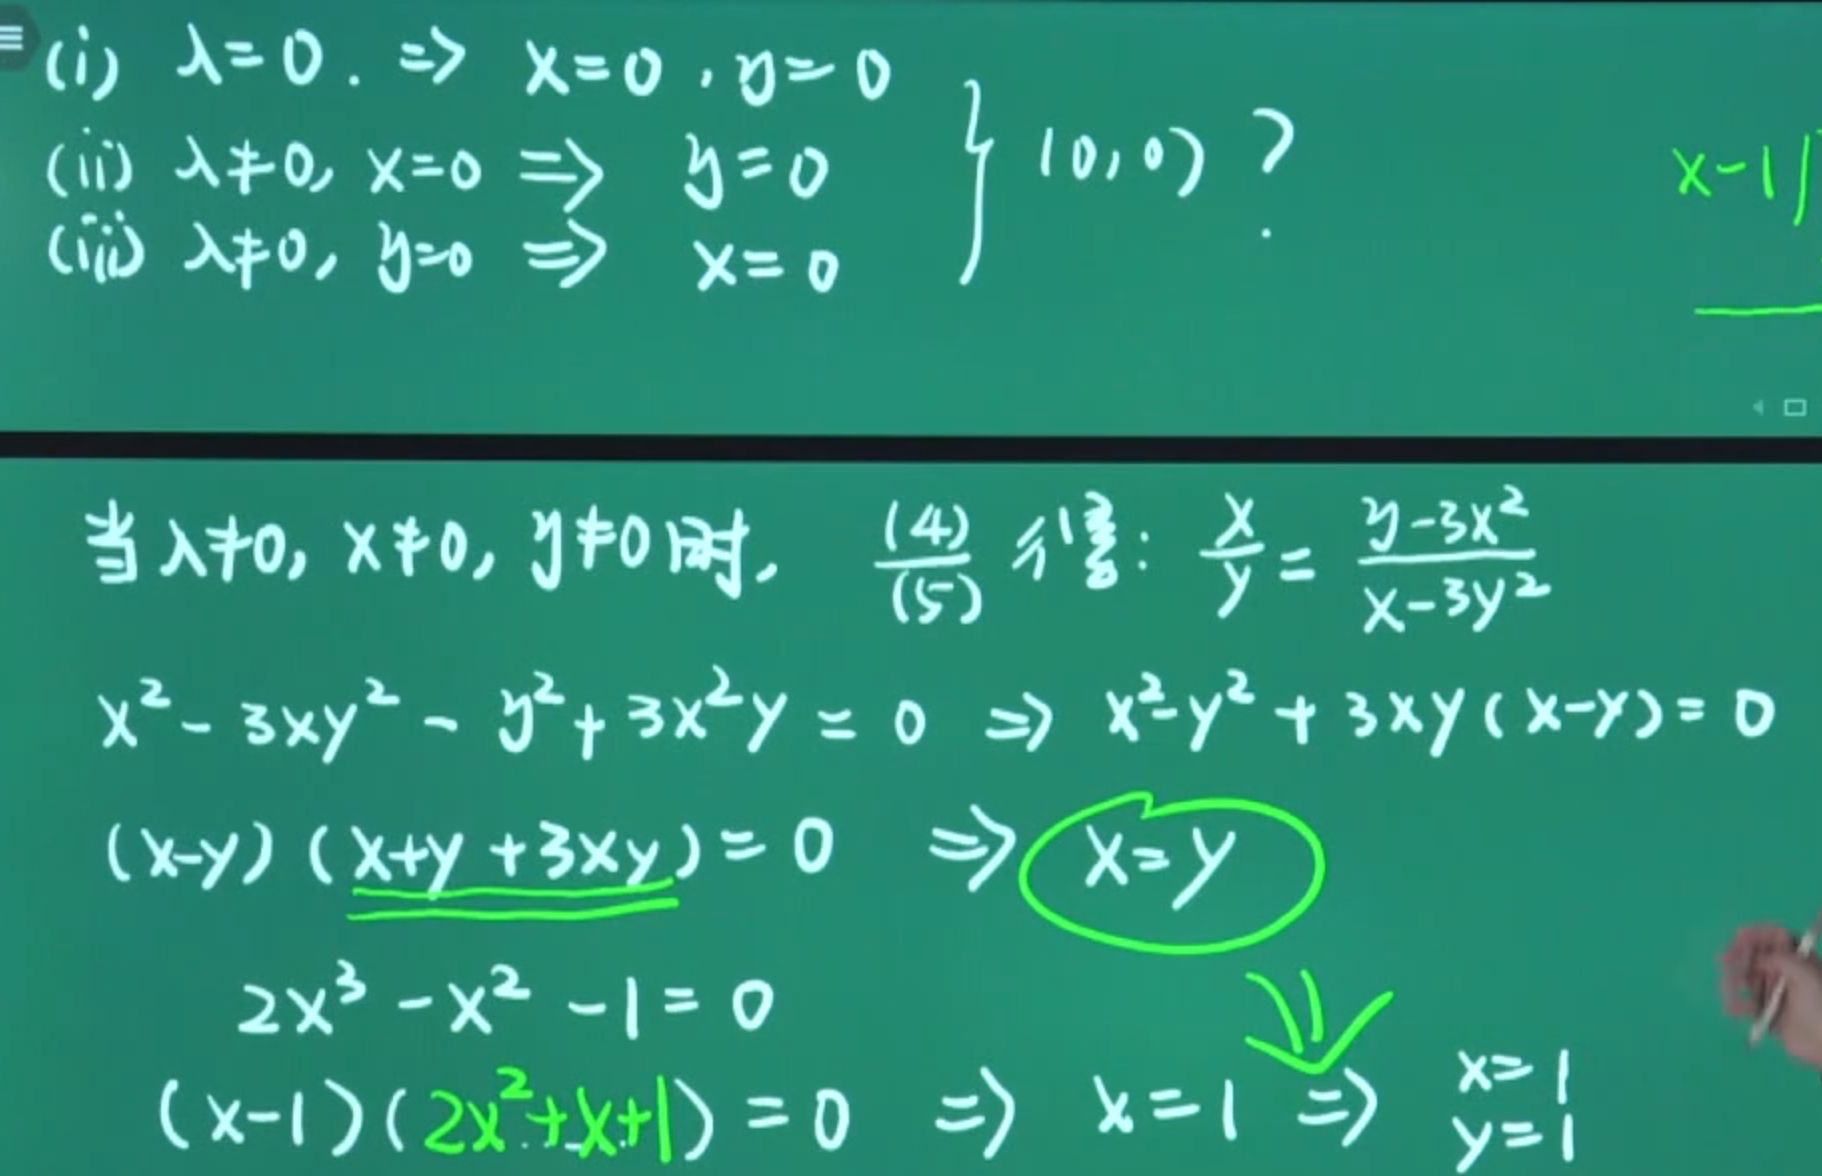 (i) λ=0. ⇒ x=0, y=0
(ii) λ≠0, x=0 ⇒ y=0
(iii) λ≠0, y=0 ⇒ x=0
} (0,0) ?
x-1)
当 λ≠0, x≠0, y≠0 时, (4)/(5) 得: x/y = (y-3x²)/(x-3y²)
x² - 3xy² - y² + 3x²y = 0 ⇒ x²-y² + 3xy(x-y) = 0
(x-y)(x+y+3xy) = 0 ⇒ x=y
2x³ - x² - 1 = 0
(x-1)(2x²+x+1) = 0 ⇒ x=1 ⇒ x=1
y=1